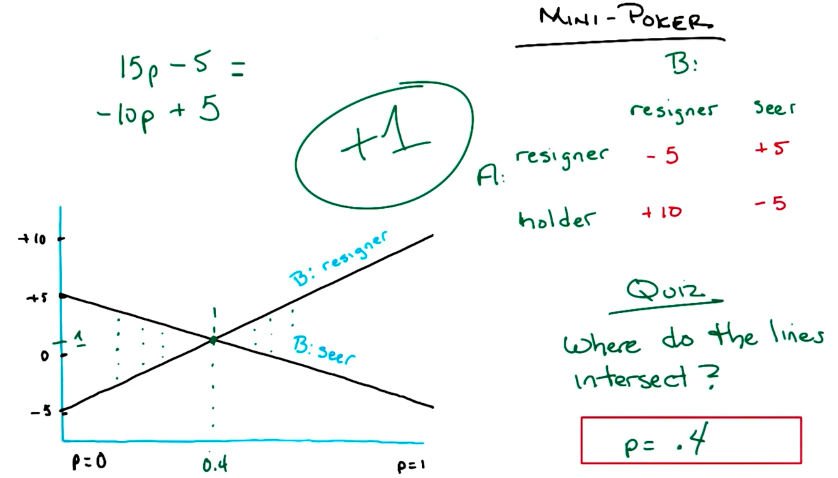 MINI-POKER
15p - 5 =
-10p + 5
+1
B:
resigner seer
A:
resigner -5 +5
holder +10 -5
+10
+5
1
0
-5
B: resigner
B: seer
p=0 0.4 p=1
Quiz
Where do the lines
intersect?
p= .4